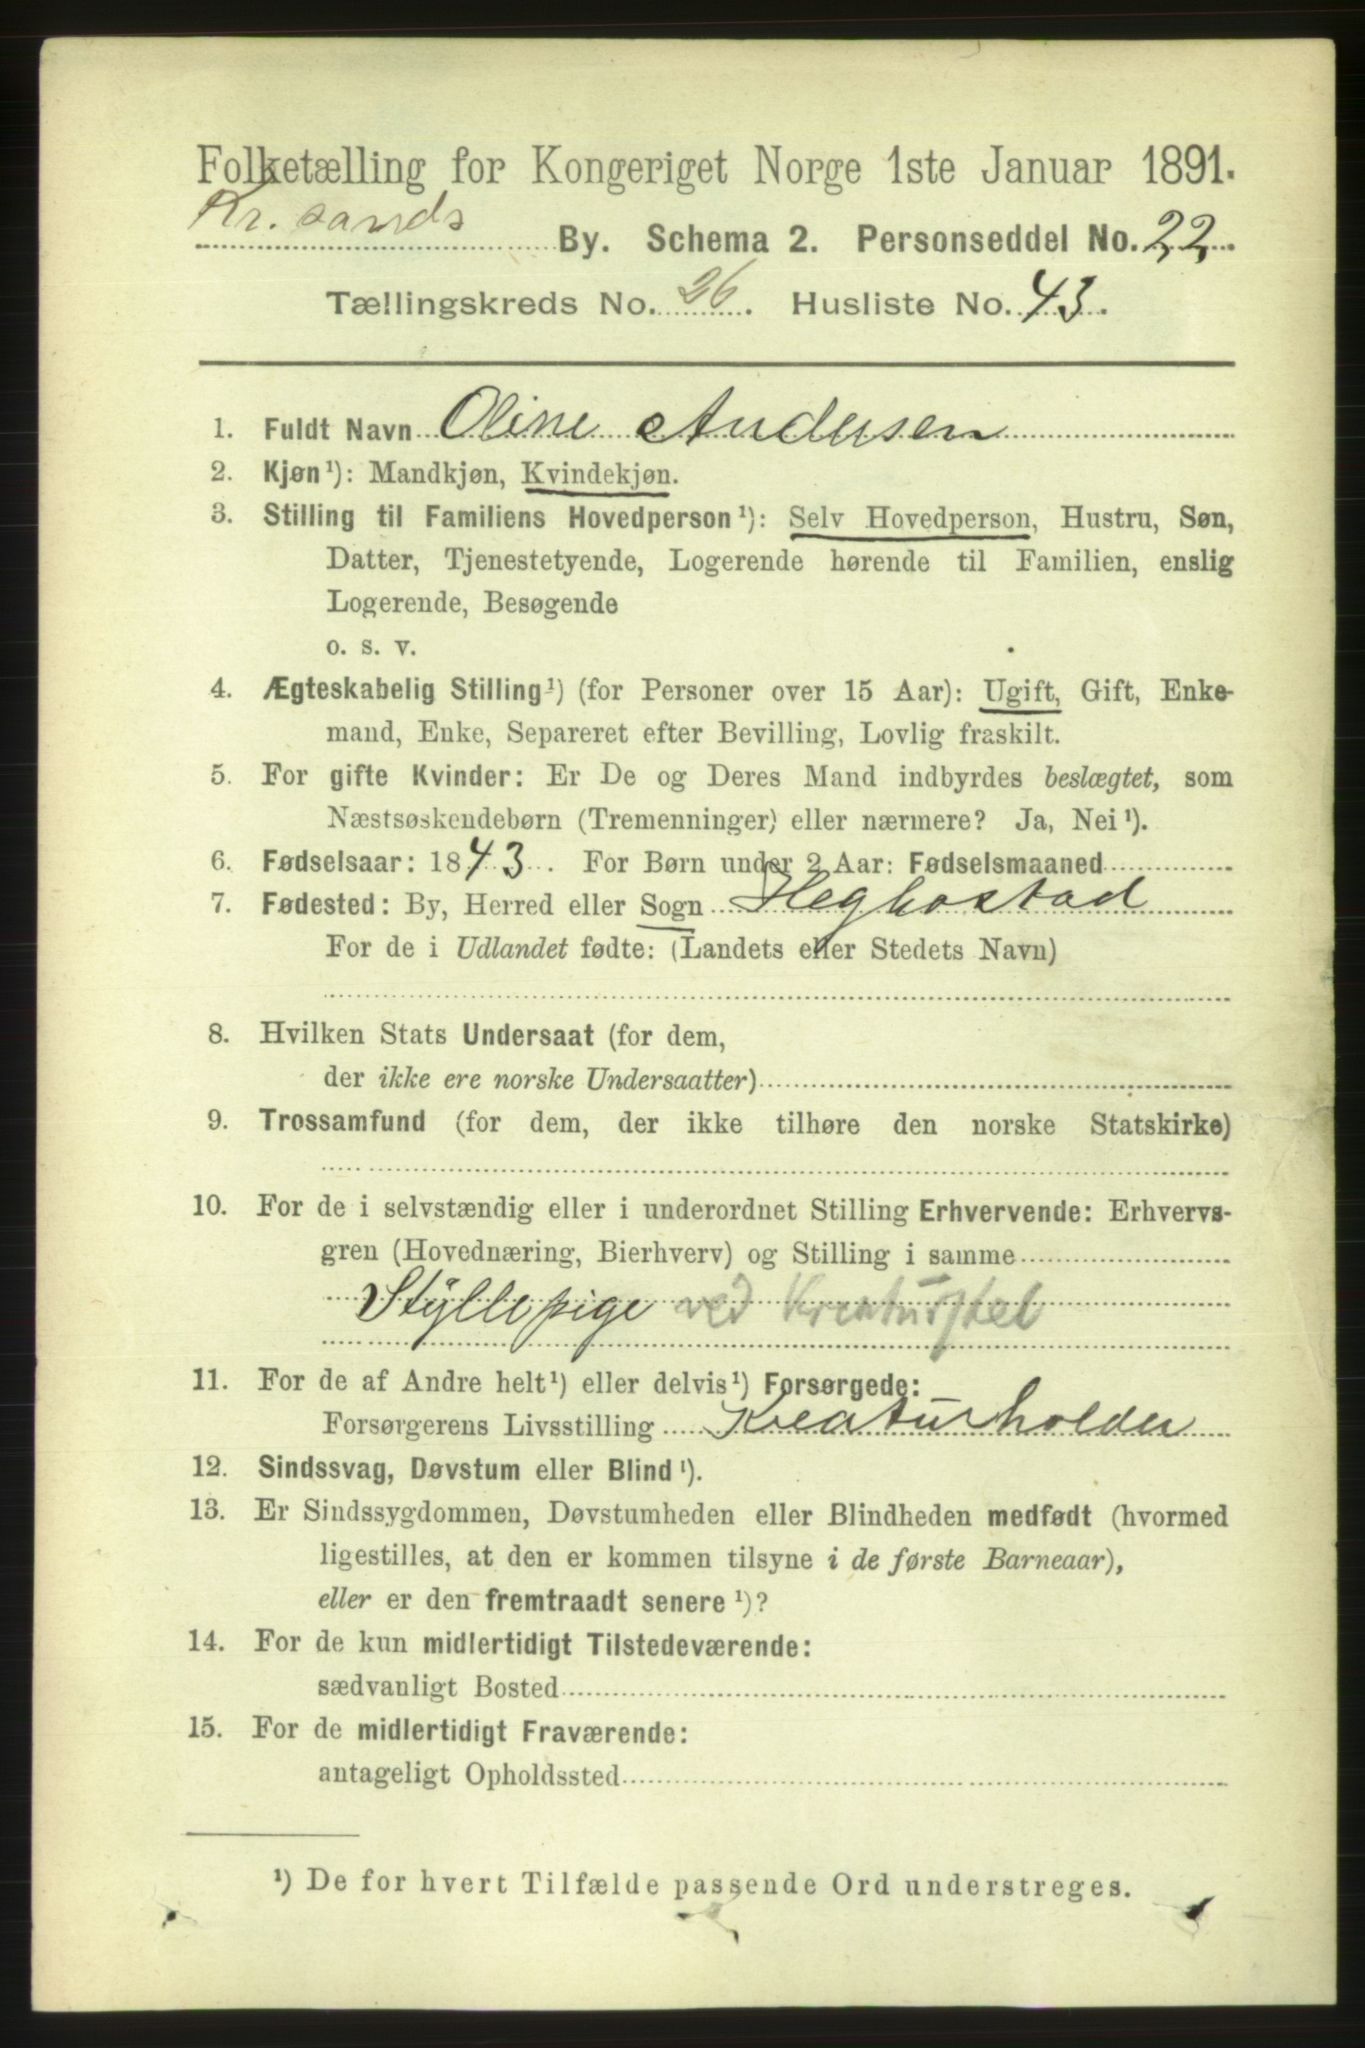 Folketælling for Kongeriget Norge 1ste Januar 1891.
Kr. sands By. Schema 2. Personseddel No. 22.
Tællingskreds No. 26. Husliste No. 43.
1. Fuldt Navn Oline Andersen
2. Kjøn¹): Mandkjøn, Kvindekjøn.
3. Stilling til Familiens Hovedperson¹): Selv Hovedperson, Hustru, Søn,
Datter, Tjenestetyende, Logerende hørende til Familien, enslig
Logerende, Besøgende
o. s. v.
4. Ægteskabelig Stilling¹) (for Personer over 15 Aar): Ugift, Gift, Enke-
mand, Enke, Separeret efter Bevilling, Lovlig fraskilt.
5. For gifte Kvinder: Er De og Deres Mand indbyrdes beslægtet, som
Næstsøskendebørn (Tremenninger) eller nærmere? Ja, Nei¹).
6. Fødselsaar: 1843. For Børn under 2 Aar: Fødselsmaaned
7. Fødested: By, Herred eller Sogn Heghostad
For de i Udlandet fødte: (Landets eller Stedets Navn)
8. Hvilken Stats Undersaat (for dem,
der ikke ere norske Undersaatter)
9. Trossamfund (for dem, der ikke tilhøre den norske Statskirke)
10. For de i selvstændig eller i underordnet Stilling Erhvervende: Erhvervs-
gren (Hovednæring, Bierhverv) og Stilling i samme
Styllepige ved Kreaturstel
11. For de af Andre helt¹) eller delvis¹) Forsørgede:
Forsørgerens Livsstilling Kreaturholder
12. Sindssvag, Døvstum eller Blind¹).
13. Er Sindssygdommen, Døvstumheden eller Blindheden medfødt (hvormed
ligestilles, at den er kommen tilsyne i de første Barneaar),
eller er den fremtraadt senere¹)?
14. For de kun midlertidigt Tilstedeværende:
sædvanligt Bosted
15. For de midlertidigt Fraværende:
antageligt Opholdssted
¹) De for hvert Tilfælde passende Ord understreges.